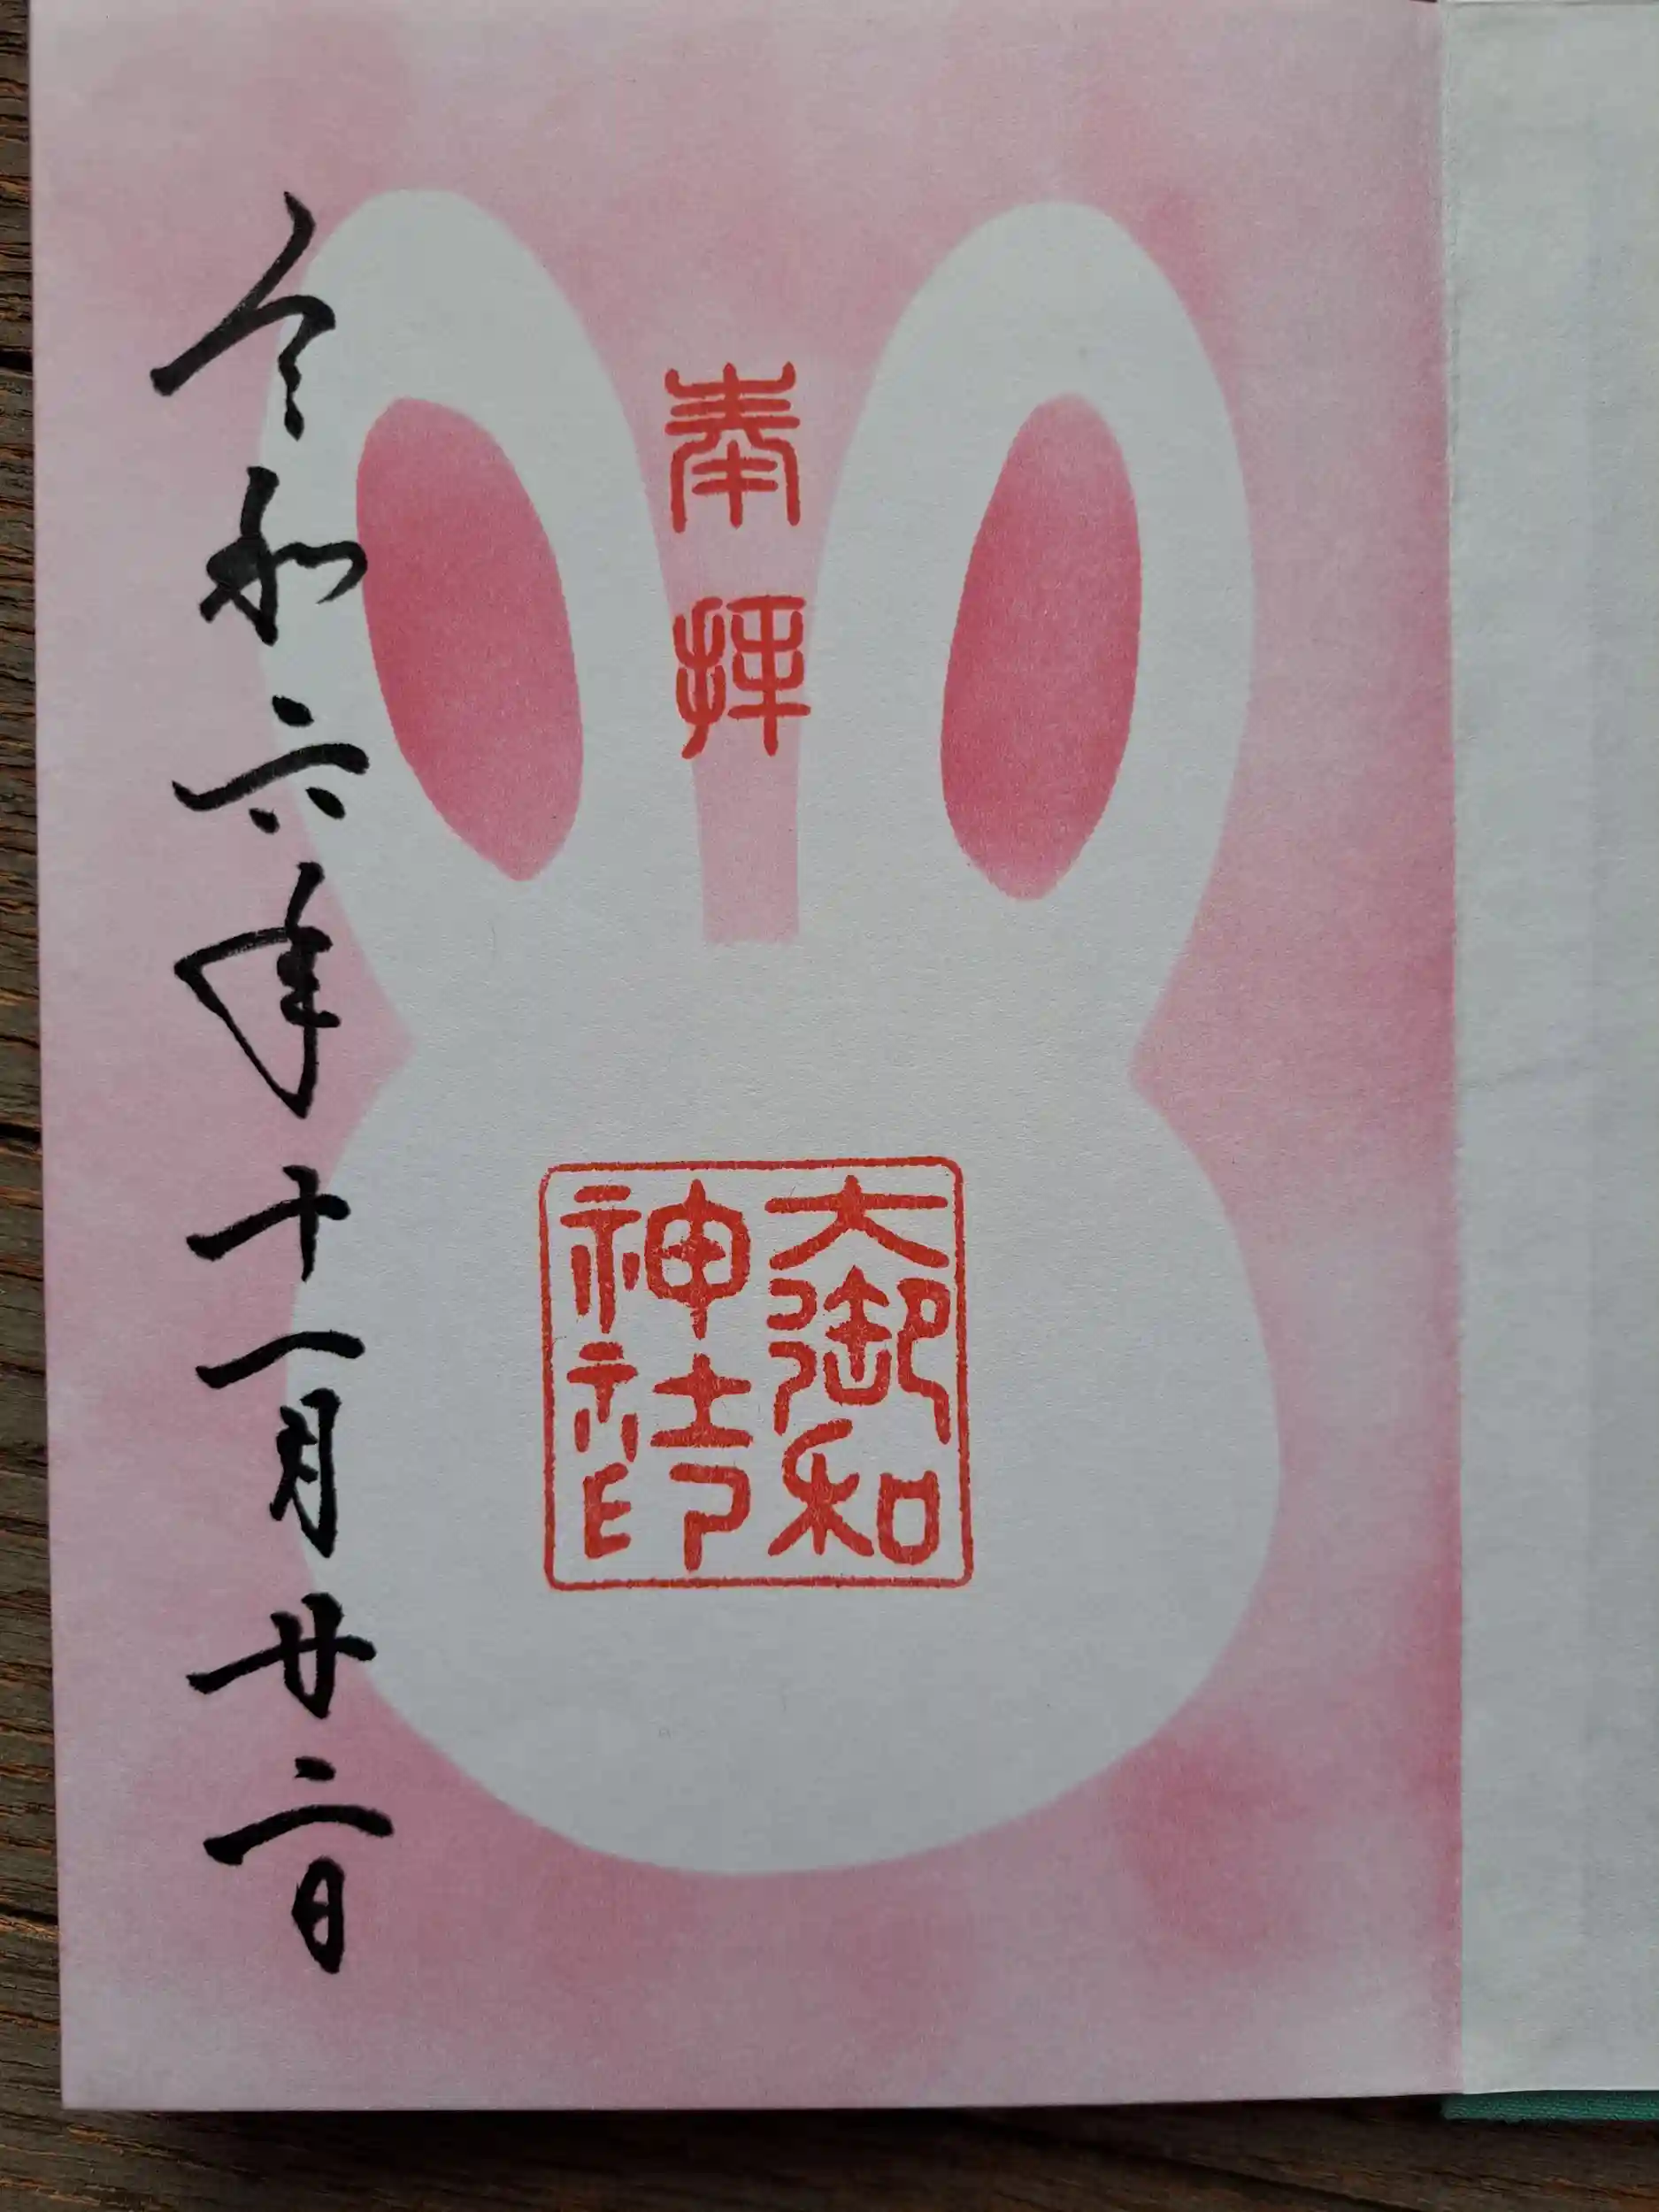 奉拝
大御和
神社印
令和六年十一月廿二日